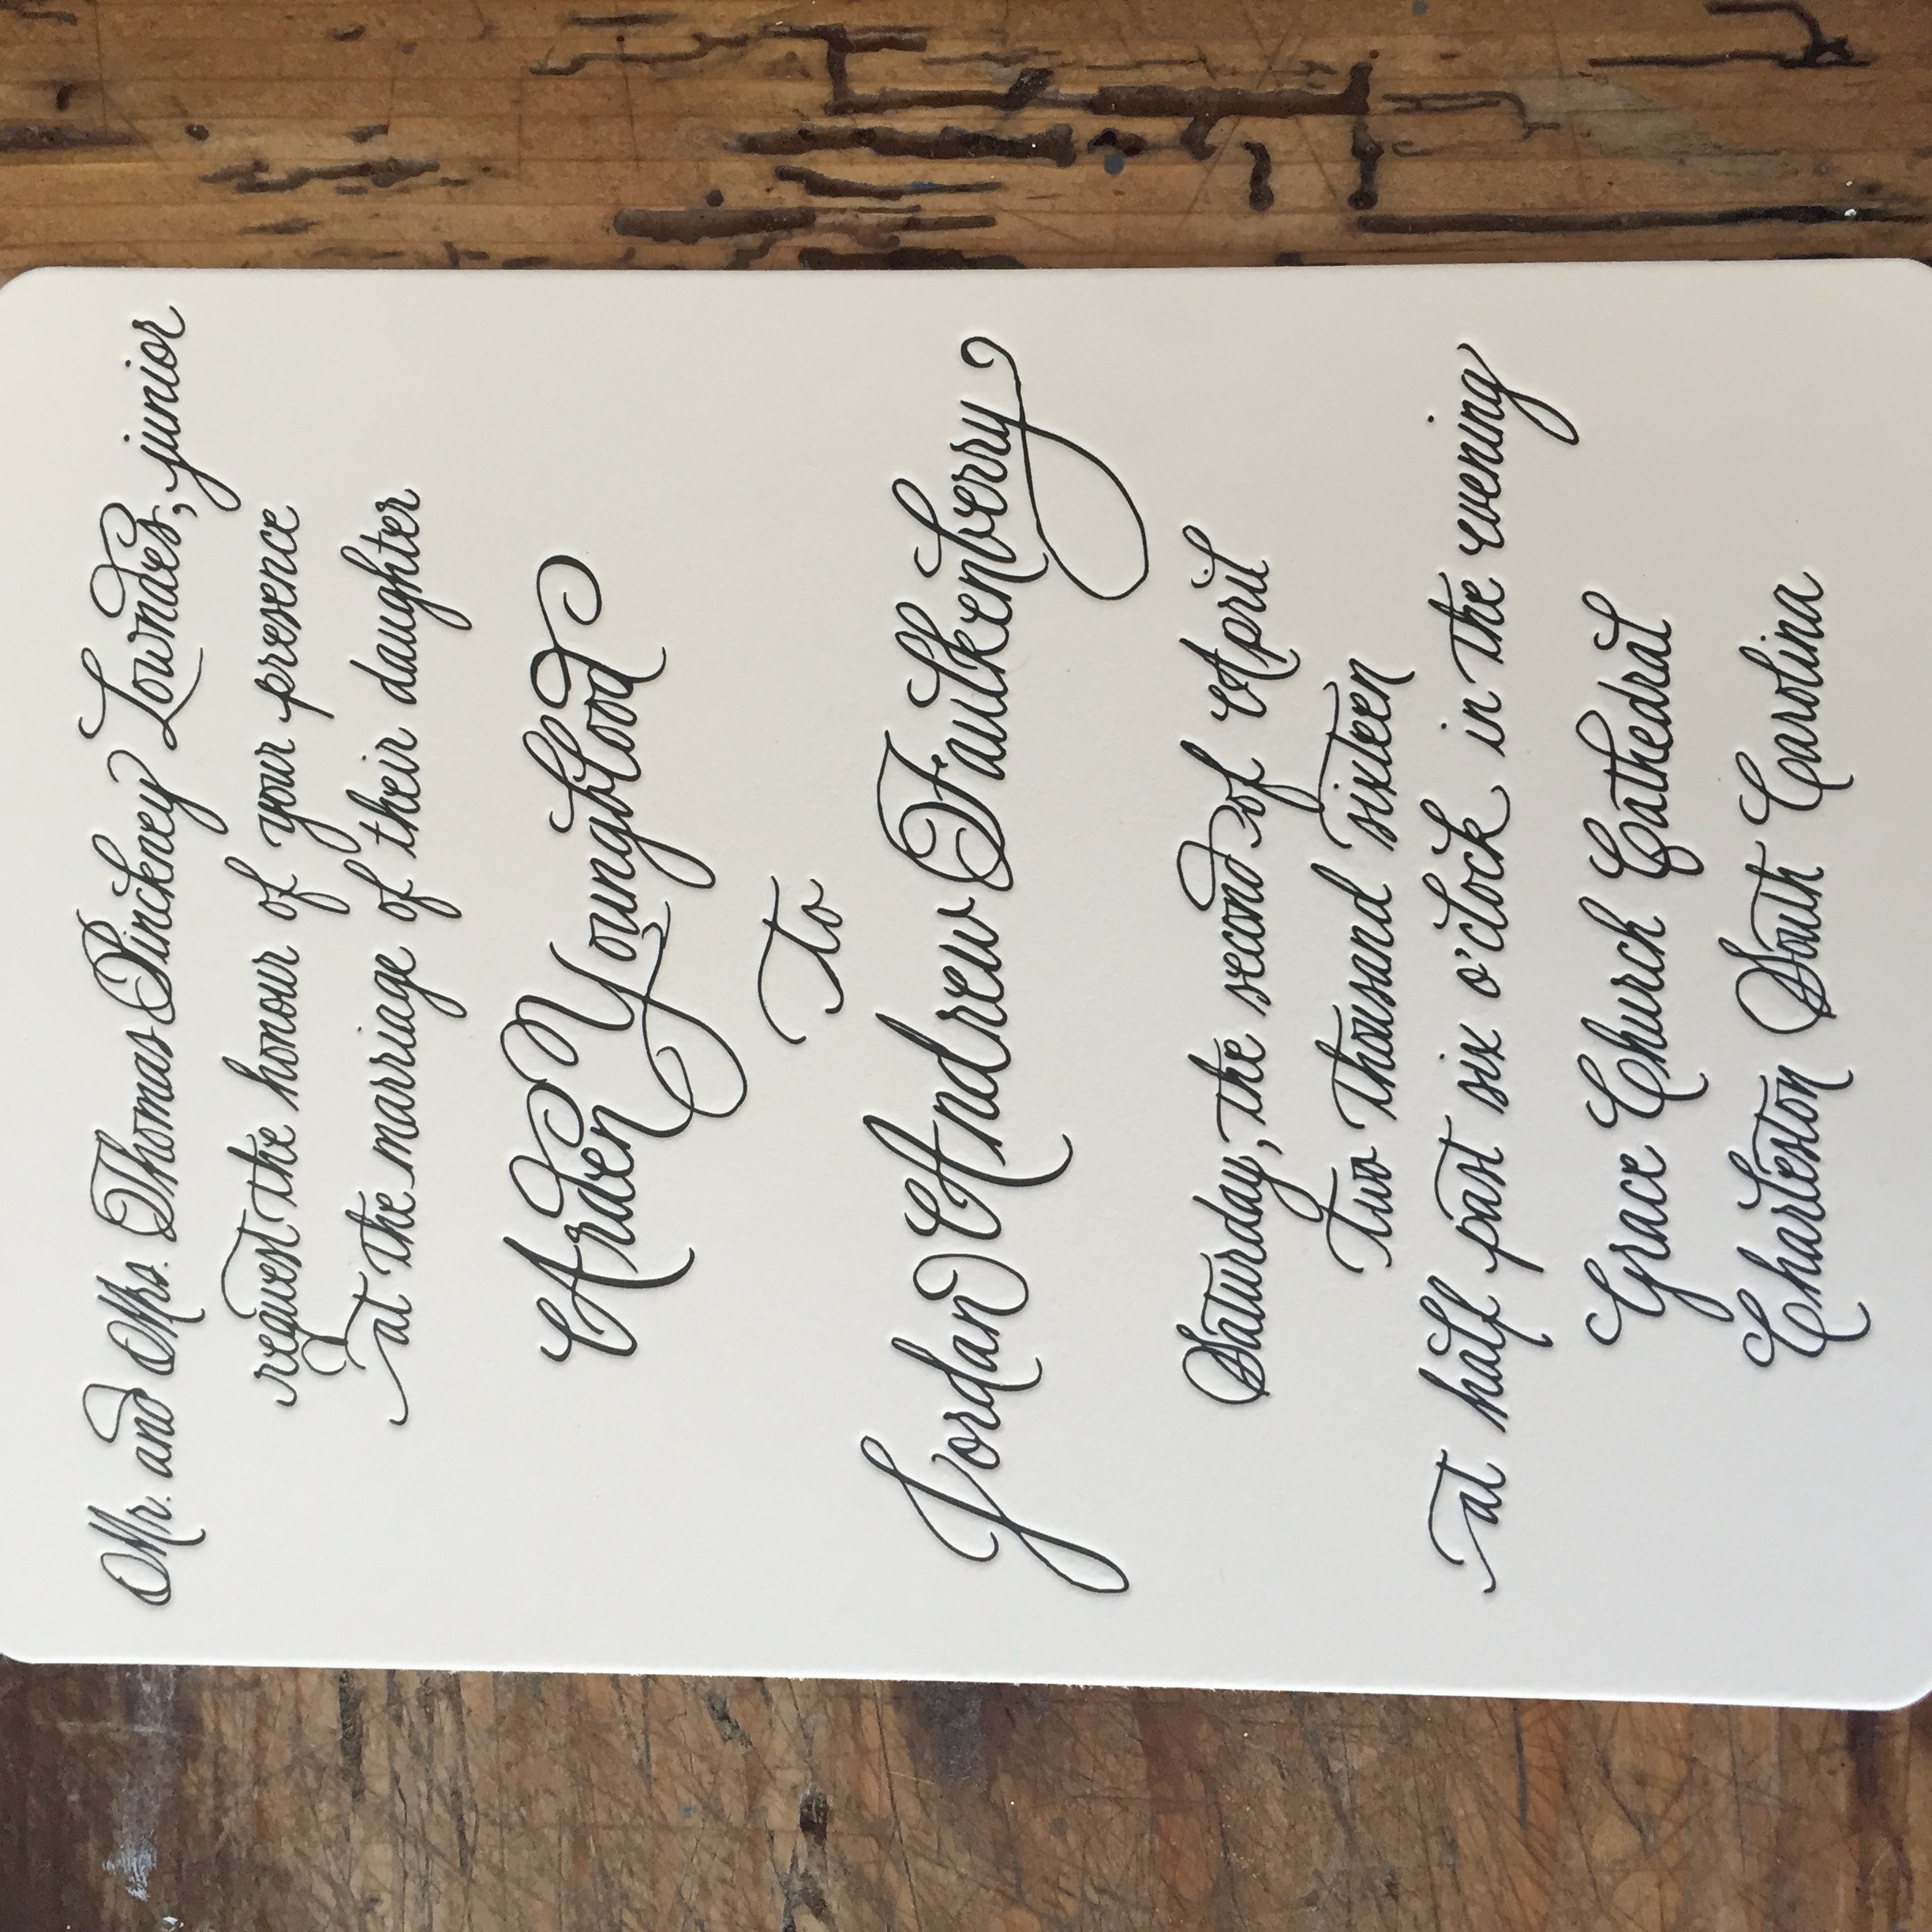 Mr. and Mrs. Thomas Pinckney Lowndes, junior
request the honour of your presence
at the marriage of their daughter
Arden Youngblood
To
Jordan Andrew Faulkenberry
Saturday, the second of April
Two Thousand sixteen
at half past six o'clock in the evening
Grace Church Cathedral
Charleston South Carolina